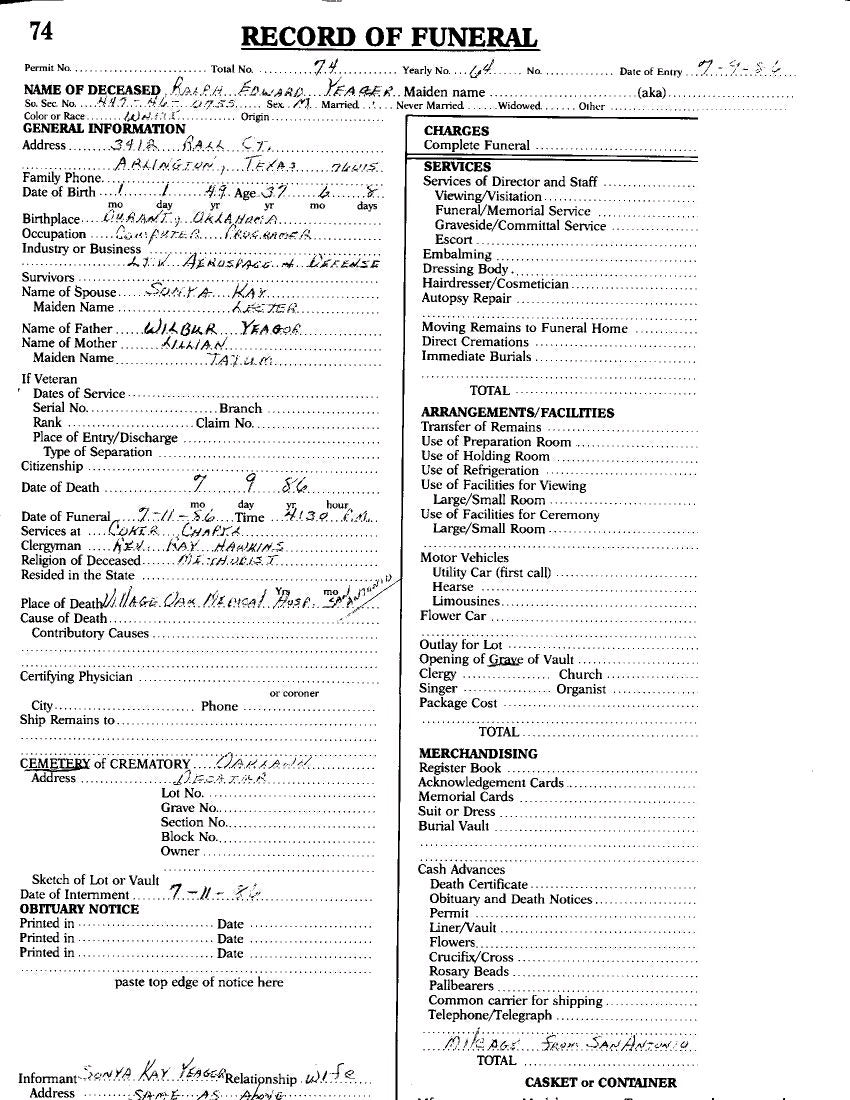 74
RECORD OF FUNERAL
Permit No. Total No. 74 Yearly No. 64 No. Date of Entry 7-9-86
NAME OF DECEASED RALPH EDWARD YEAGER Maiden name (aka)
So. Sec. No. 447-46-0755 Sex M Married Never Married Widowed Other
Color or Race WHITE Origin
GENERAL INFORMATION
Address 3912 RALL CT.
ARLINGTON, TEXAS 76015
Family Phone
Date of Birth 1 1 49 Age 37 6 8
mo day yr yr mo days
Birthplace DURANT, OKLAHOMA
Occupation COMPUTER PROGRAMER
Industry or Business
LTV AEROSPACE + DEFENSE
Survivors
Name of Spouse SONYA KAY
Maiden Name LESTER
Name of Father WILBUR YEAGOR
Name of Mother LILLIAN
Maiden Name TATUM
If Veteran
Dates of Service
Serial No. Branch
Rank Claim No.
Place of Entry/Discharge
Type of Separation
Citizenship
Date of Death 7 9 86
mo day yr hour
Date of Funeral 7-11-86 Time 4:30 P.M.
Services at COKER CHAPEL
Clergyman REV. RAY HAWKINS
Religion of Deceased METHODIST
Resided in the State
Yrs mo
Place of Death VILLAGE OAK MEDICAL HOSP. SAN ANTONIO
Cause of Death
Contributory Causes
Certifying Physician
or coroner
City Phone
Ship Remains to
CEMETERY of CREMATORY OAKLAWN
Address DECATUR
Lot No.
Grave No.
Section No.
Block No.
Owner
Sketch of Lot or Vault
Date of Internment 7-11-86
OBITUARY NOTICE
Printed in Date
Printed in Date
Printed in Date
paste top edge of notice here
Informant SONYA KAY YEAGER Relationship WIFE
Address SAME AS ABOVE
CHARGES
Complete Funeral
SERVICES
Services of Director and Staff
Viewing/Visitation
Funeral/Memorial Service
Graveside/Committal Service
Escort
Embalming
Dressing Body
Hairdresser/Cosmetician
Autopsy Repair
Moving Remains to Funeral Home
Direct Cremations
Immediate Burials
TOTAL
ARRANGEMENTS/FACILITIES
Transfer of Remains
Use of Preparation Room
Use of Holding Room
Use of Refrigeration
Use of Facilities for Viewing
Large/Small Room
Use of Facilities for Ceremony
Large/Small Room
Motor Vehicles
Utility Car (first call)
Hearse
Limousines
Flower Car
Outlay for Lot
Opening of Grave of Vault
Clergy Church
Singer Organist
Package Cost
TOTAL
MERCHANDISING
Register Book
Acknowledgement Cards
Memorial Cards
Suit or Dress
Burial Vault
Cash Advances
Death Certificate
Obituary and Death Notices
Permit
Liner/Vault
Flowers
Crucifix/Cross
Rosary Beads
Pallbearers
Common carrier for shipping
Telephone/Telegraph
MILEAGE FROM SAN ANTONIO
TOTAL
CASKET or CONTAINER